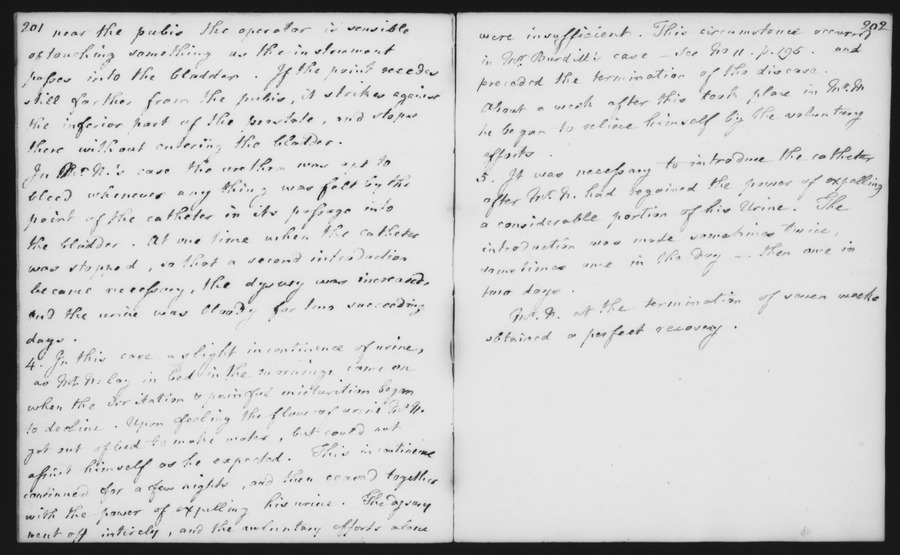 201
near the pubis the operator is sensible
of touching something as the instrument
passes into the bladder. If the point recedes
still farther from the pubis, it strikes against
the inferior part of the prostate, and stops
there without entering the bladder.
In Mr. N.'s case the urethra was apt to
bleed whenever any thing was felt by the
point of the catheter in its passage into
the bladder. At one time when the catheter
was stopped, so that a second introduction
became necessary, the dysury was increased,
and the urine was bloody for two succeeding
days.
4. In this case a slight incontinence of urine,
as Mr. N. lay in bed in the mornings came on
when the irritation & painful micturition began
to decline. Upon feeling the flow of urine Mr. N.
got out of bed to make water, but could not
assist himself as he expected. This incontinence
continued for a few nights, and then ceased together
with the power of expelling his urine. The dysury
went off intirely, and the voluntary efforts alone
202
were insufficient. This circumstance occurred
in Mr. Burdill's case - see No 11. p. 195. and
preceded the termination of the disease.
About a week after this took place in Mr. N.
he began to relieve himself by the voluntary
efforts.
5. It was necessary to introduce the catheter
after Mr. N. had regained the power of expelling
a considerable portion of his Urine. The
introduction was made sometimes twice,
sometimes once in the day - then once in
two days.
Mr. N. at the termination of seven weeks
obtained a perfect recovery.